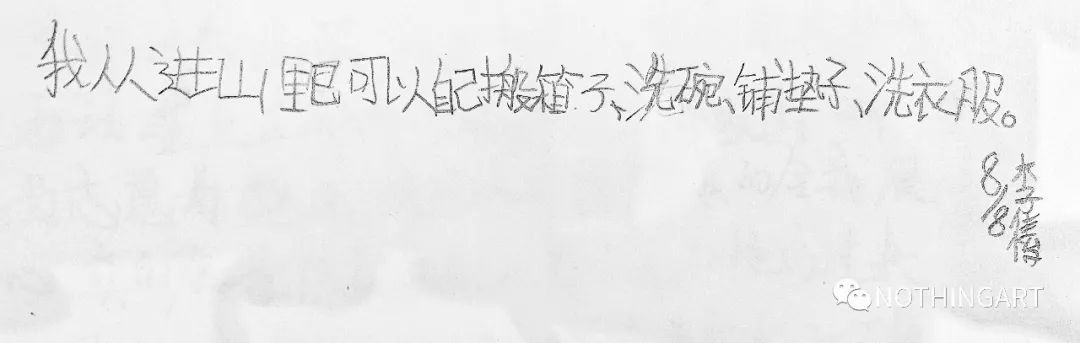 我从进山里已可以自己搬箱子、洗碗、铺垫子、洗衣服。
8/8
李佳
NOTHINGART